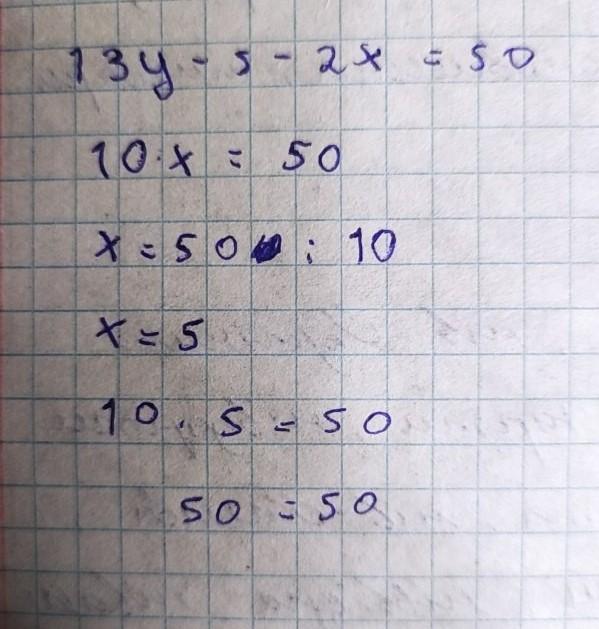 13y - 5 - 2x = 50
10·x = 50
x = 50 : 10
x = 5
10 · 5 = 50
50 = 50